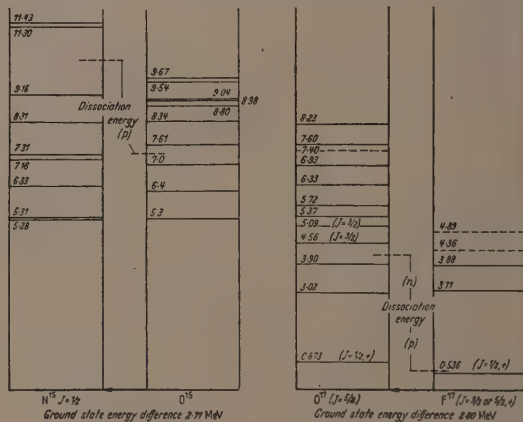 11·43
11·30
9·16
8·31
7·31
7·16
6·33
5·31
5·28
Dissociation
energy
(p)
9·67
9·54
9·04
8·98
8·80
8·34
7·61
7·0
6·4
5·3
N¹⁵ J=1/2
O¹⁵
Ground state energy difference 2·71 MeV
8·23
7·60
7·40
6·93
6·33
5·72
5·37
5·09 (J=3/2)
4·56 (J=3/2)
3·90
3·03
(n)
Dissociation
energy
(p)
(J=1/2,+)
4·89
4·36
3·88
3·11
0·536 (J=1/2,+)
O¹⁷ (J=5/2)
F¹⁷ (J=3/2 or 5/2,+)
Ground state energy difference MeV